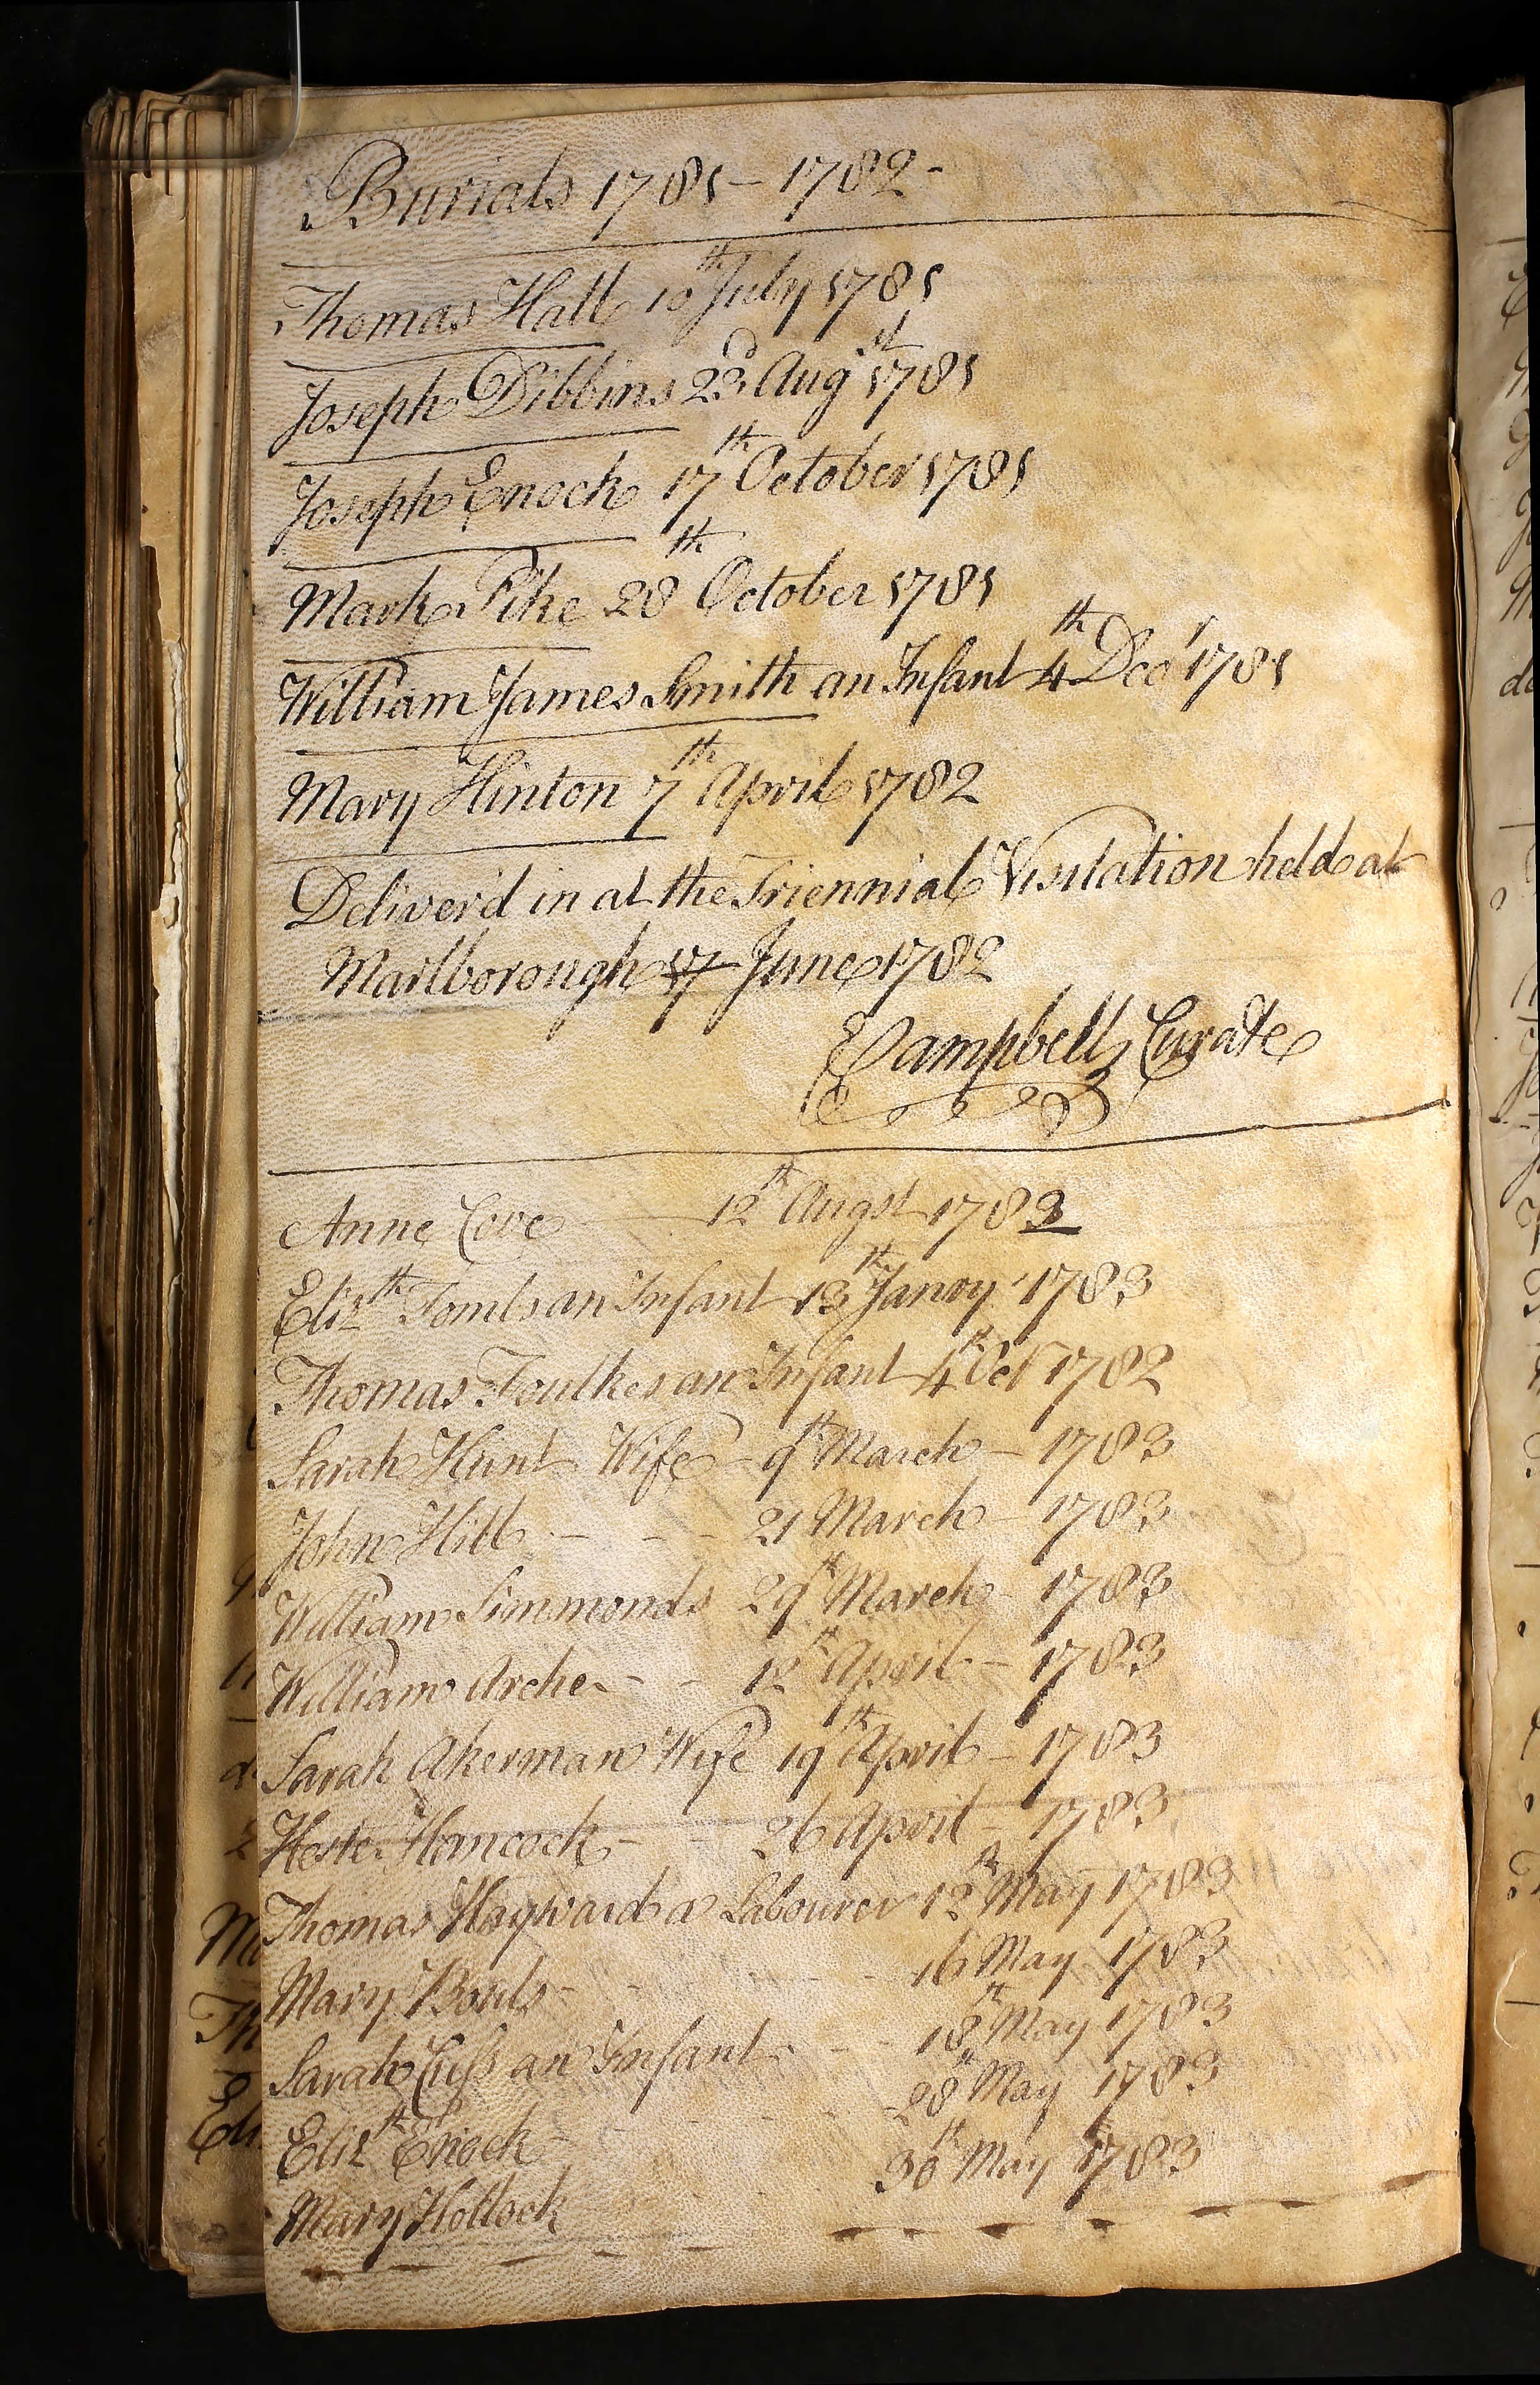 Burials 1781 - 1782 -
Thomas Hall 10th July 1781
Joseph Dibbins 23d Augst 1781
Joseph Enock 17th October 1781
Mark Pike 28th October 1781
William James Smith an Infant 4th Decr 1781
Mary Hinton 7th April 1782
Deliver'd in at the Triennial Visitation held at
Marlborough 17 June 1782
Campbell, Curate
Anne Cove 12th Augst 1782
Elizth Tomls an Infant 13th Janry 1783
Thomas Foulkes an Infant 4th Octr 1782
Sarah Hunt Wife - 9th March - 1783
John Hill - - - 21 March - 1783
William Simmonds 29th March - 1783
William Archer - - 12th April - 1783
Sarah Akerman Wife 19th April - 1783
Hester Hancock - - 26 April - 1783
Thomas Hayward a Labourer 12th May 1783
Mary Bouls - - - - 16 May 1783
Sarah Cuss an Infant - - - 18th May 1783
Elizth Enock - - - - 28th May 1783
Mary Hollock - - - - 30th May 1783